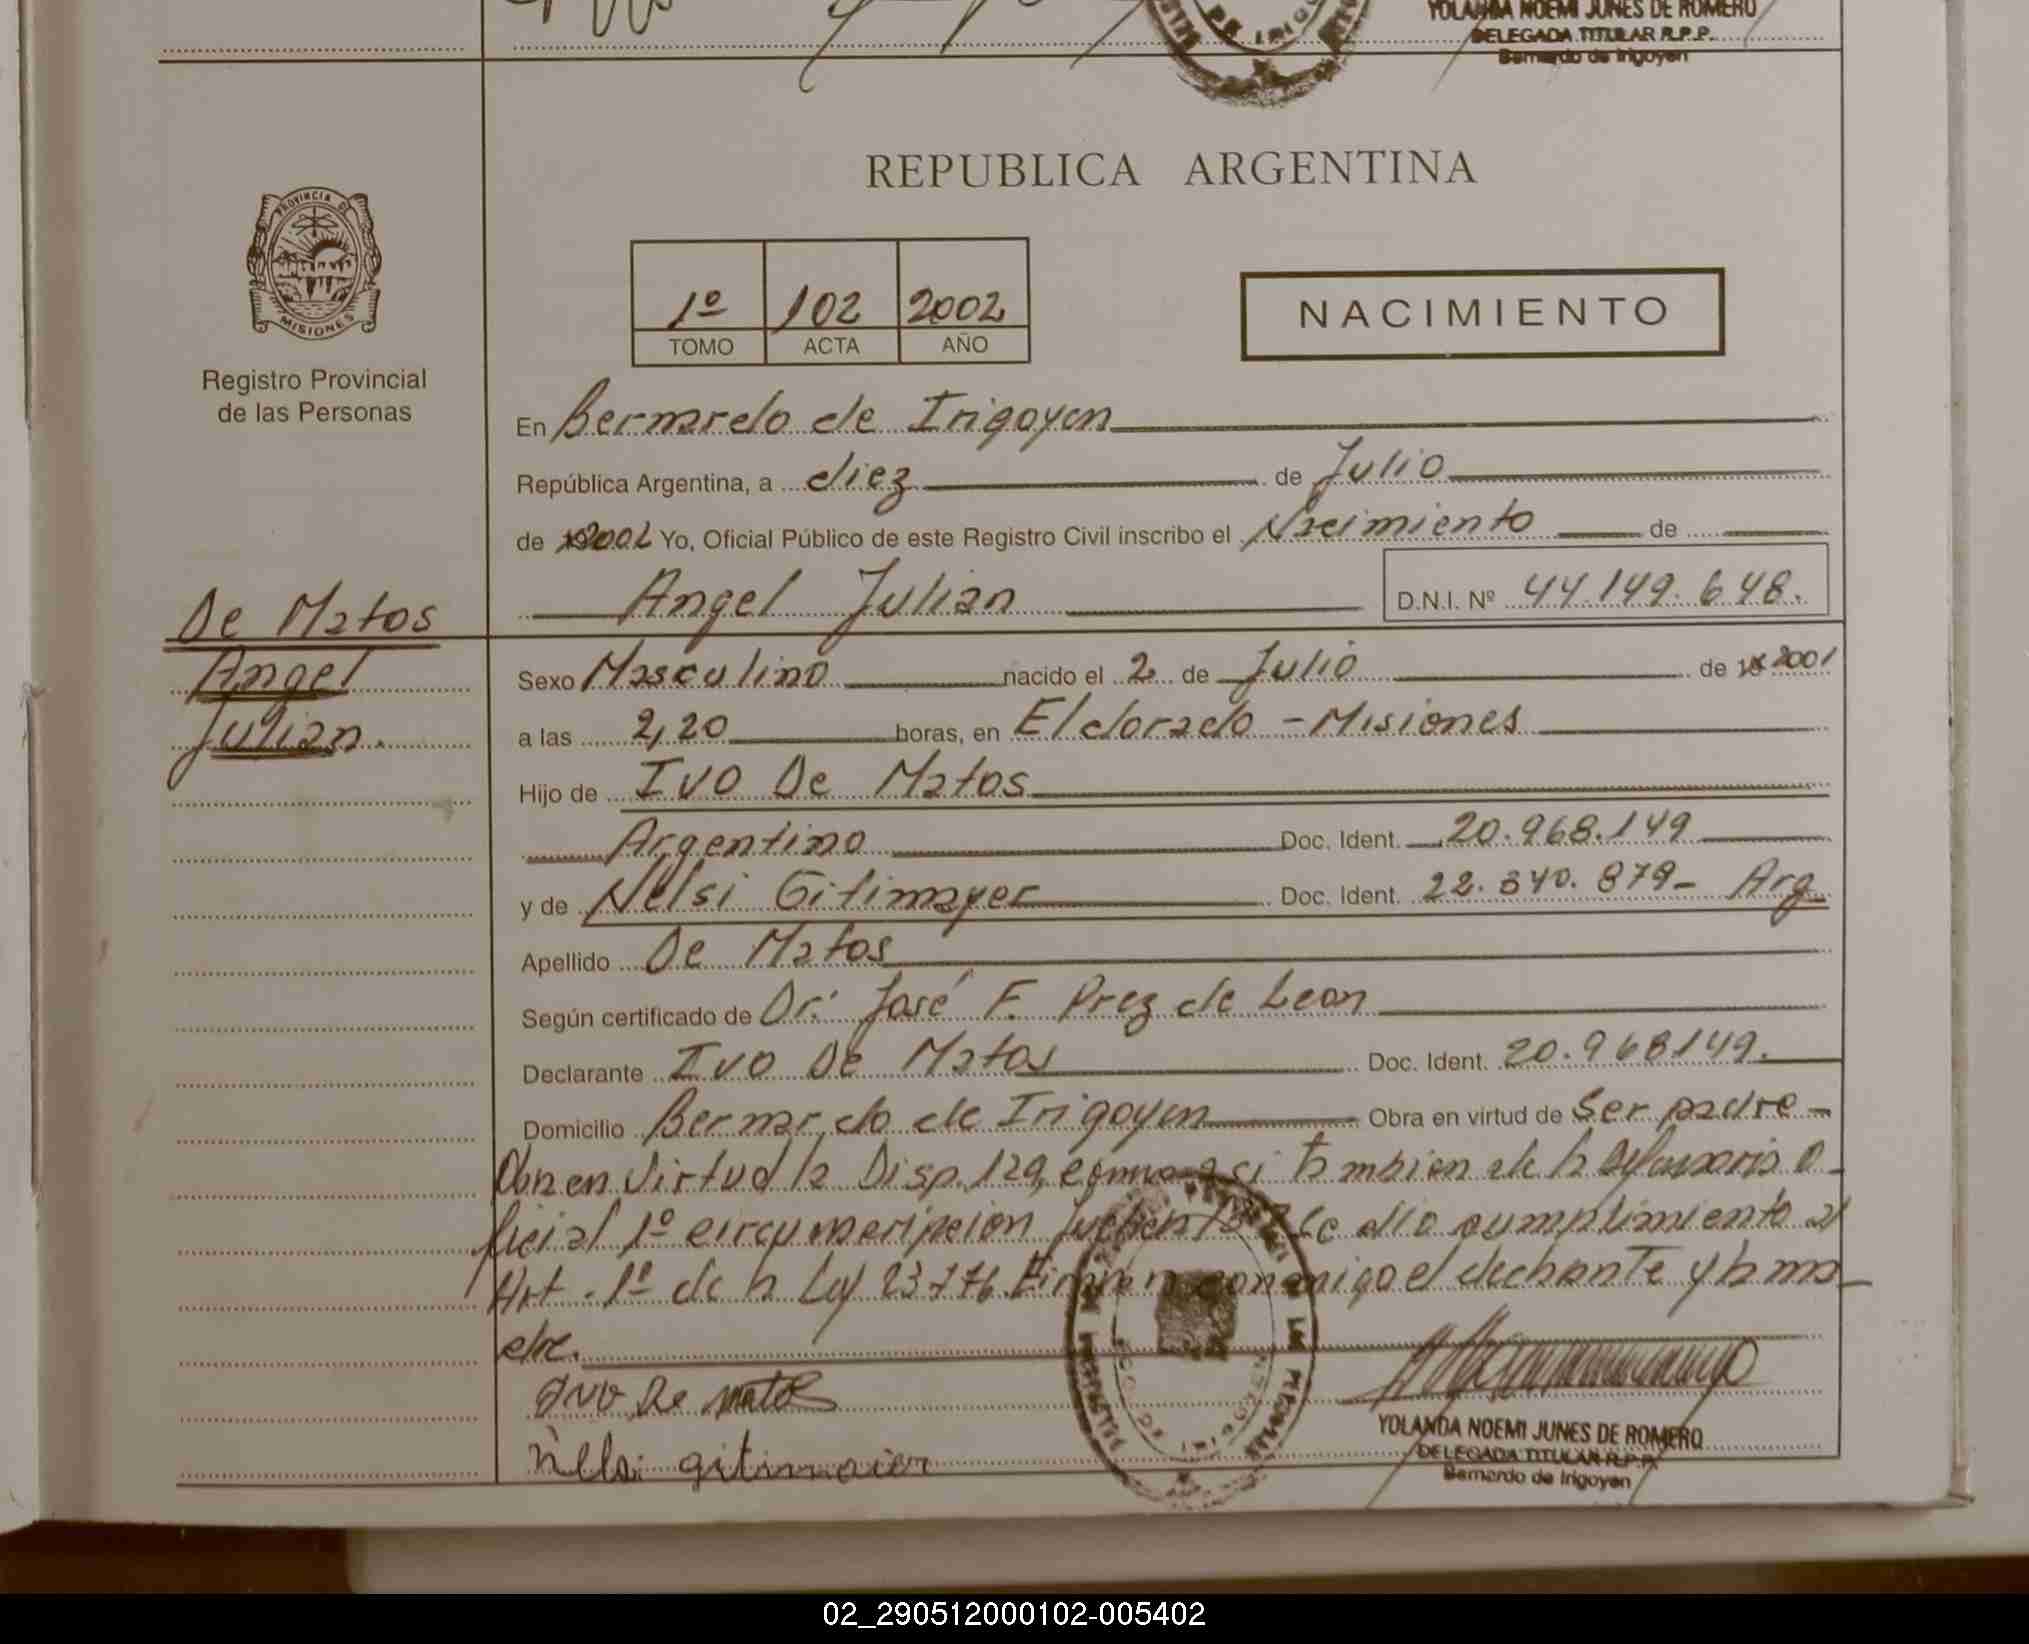 YOLANDA NOEMI JUNES DE ROMERO
DELEGADA TITULAR R.P.P.
Bernardo de Irigoyen
REPUBLICA ARGENTINA
PROVINCIA DE
MISIONES
Registro Provincial
de las Personas
1º 102 2002
TOMO ACTA AÑO
NACIMIENTO
En Bernardo de Irigoyen
República Argentina, a diez de Julio
de 2002 Yo, Oficial Público de este Registro Civil inscribo el Nacimiento de
Angel Julian D.N.I. Nº 44.149.648.
De Matos
Angel
Julian.
Sexo Masculino nacido el 2 de Julio de 2001
a las 2,20 horas, en Eldorado - Misiones
Hijo de Ivo De Matos
Argentino Doc. Ident. 20.968.149
y de Nelsi Gitimayer Doc. Ident. 22.340.879- Arg
Apellido De Matos
Según certificado de Dr. José F. Prez de Leon
Declarante Ivo De Matos Doc. Ident. 20.968149.
Domicilio Bernardo de Irigoyen Obra en virtud de Ser padre -
Obra en Virtud la Disp. 129, como asi tambien de la O-
ficial 1º circunscripcion Se dio cumplimiento al
Art. 1º de la Ley 23776 Firman conmigo el declarante y la ma-
dre.
Ivo De Matos
Nelsi gitimaier
YOLANDA NOEMI JUNES DE ROMERO
DELEGADA TITULAR R.P.P.
Bernardo de Irigoyen
02_290512000102-005402